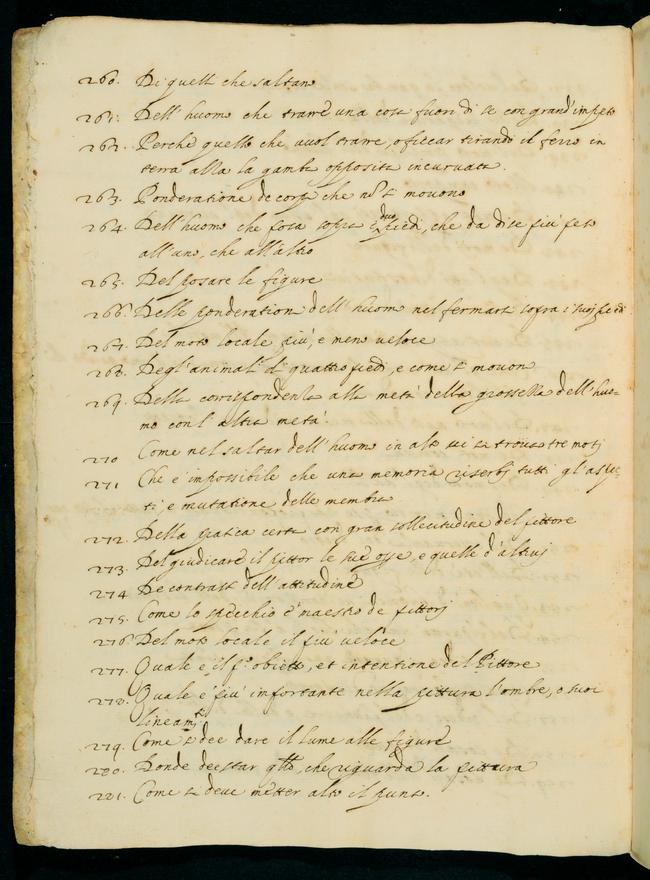 260. Di quelli che saltano
261. Dell'huomo che trarre una cosa fuori di se con grand'impeto
262. Perche quello che vuol trarre, o ficcar tirando il ferro in
terra alla la gamba opposita incurvata.
263. Ponderatione de corpi che nõ si movono
264. Dell'huomo che posa sopra i duo piedi, che da di se più peso
all'uno, che all'altro
265. Del posare le figure
266. Delle ponderation dell'huomo nel fermarsi sopra i suoj piedi
267. Del moto locale più, e meno veloce
268. Degl'animali di quattro piedi, e come si movon
269. Della corrispondenza alla metà della grossezza dell'huo-
mo con l'altra metà.
270 Come nel saltar dell'huomo in alto vi si trova tre motj
271 Che è impossibile che una memoria riserbj tutti gl'aspet-
ti, e mutatione delle membra
272. Della pratica certa con gran sollecitudine del pittore
273. Del giudicare il pittor le sue opre, e quelle d'altruj
274 De contrasti dell'attitudine
275. Come lo specchio è maestro de pittorj
276 Del moto locale il più veloce
277. Quale è il p.º obietto, et intentione del Pittore
278. Quale è più importante nella pittura l'ombre, o suoi
lineam.ti
279. Come si dee dare il lume alle figure
280. Donde dee star qllo, che riguarda la pittura
281. Come si deve metter alto il punto.